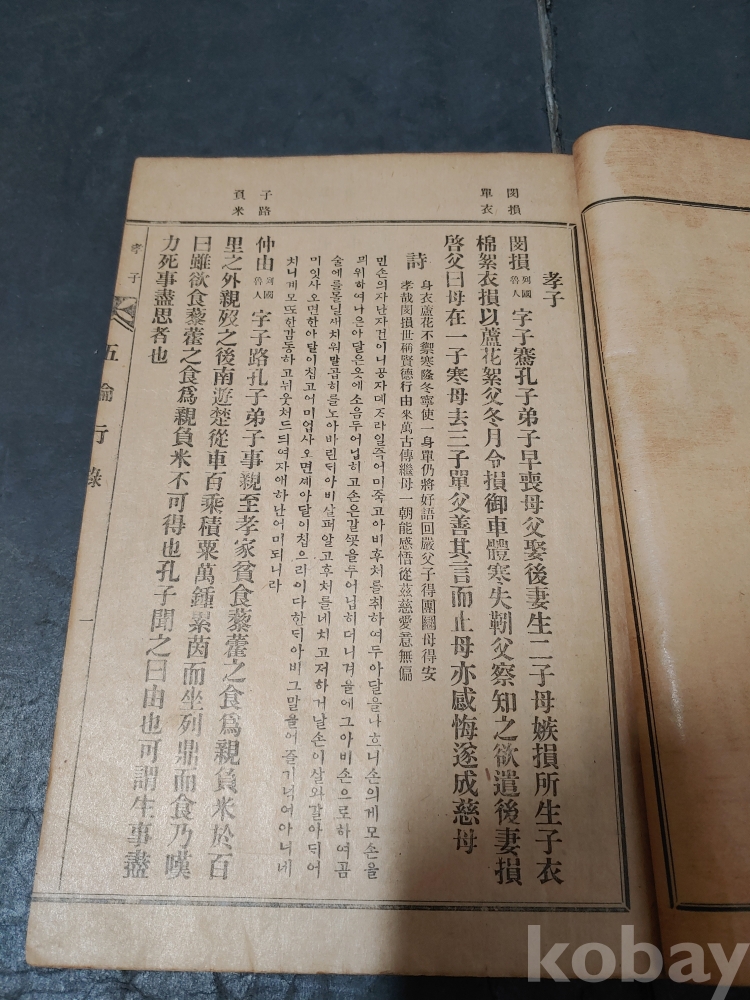 閔損
單衣
子路
負米
孝子
閔損 列國魯人 字子騫孔子弟子早喪母父娶後妻生二子母嫉損所生子衣
棉絮衣損以蘆花絮父冬月令損御車體寒失靷父察知之欲遣後妻損
啓父曰母在一子寒母去三子單父善其言而止母亦感悔遂成慈母
詩
身衣蘆花不禦寒隆冬寧使一身單仍將好語回嚴父子得團圞母得安
孝哉閔損世稱賢德行由來萬古傳繼母一朝能感悟從玆慈愛意無偏
민손의자난자건이니공자뎨자라일즉어미죽고아비후처를취하여두아달을나흐니손의게모손을
믜위하여나은아달은옷에소음두어닙히고손은갈꼿을두어닙히더니겨울에그아비손으로하여곰
술에를몰닐새치워말곱히를노아바린뒤아비살펴알고후처를네치고저하거날손이살와갈아되어
미잇사오면한아달이칩고어미업사오면세아달이칩으리이다한뒤아비그말을어즐기녁여아니네
치니게모또한감동하고뉘웃처드듸여자애하난어미되니라
仲由 列國魯人 字子路孔子弟子事親至孝家貧食藜藿之食爲親負米於百
里之外親歿之後南遊楚從車百乘積粟萬鍾累茵而坐列鼎而食乃嘆
曰雖欲食藜藿之食爲親負米不可得也孔子聞之曰由也可謂生事盡
力死事盡思者也
孝子
五倫行錄
一
kobay